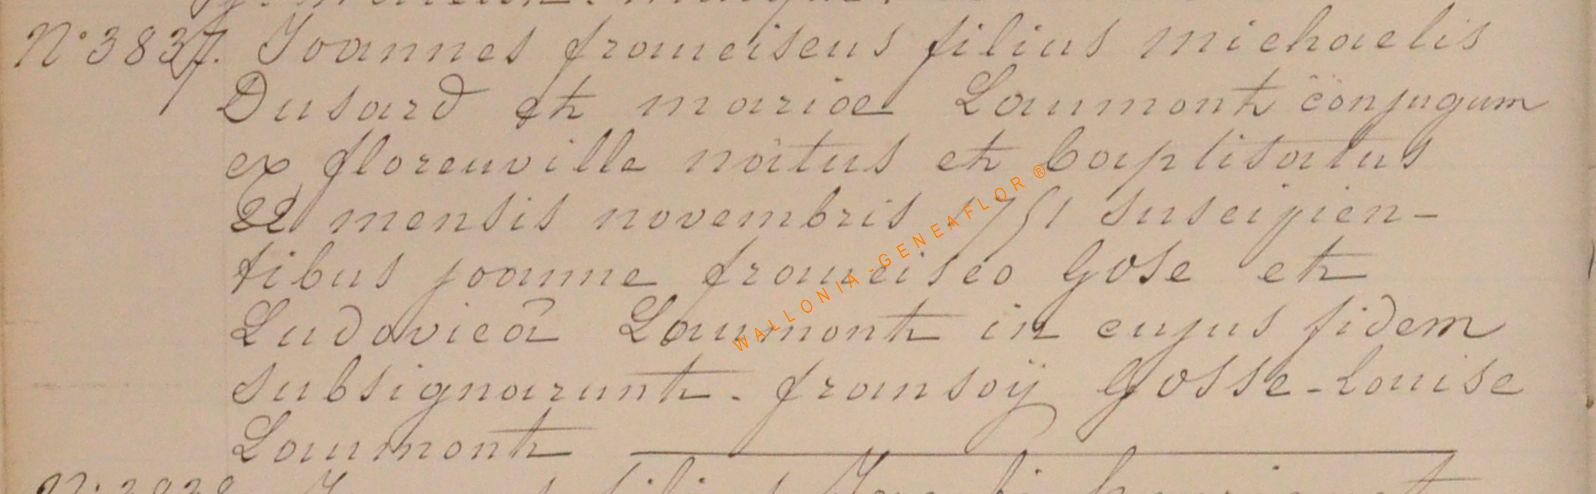 N° 3837. Joannes franciscus filius michaelis
Dusard et mariae Laumont conjugum
ex florenville natus et baptisatus
22 mensis novembris 1751 suscipien-
tibus joanne francisco Gose et
Ludovicâ Laumont in cujus fidem
subsignarunt. fransoÿ Gosse-Louise
Laumont
WALLONIA-GENEAFLOR®